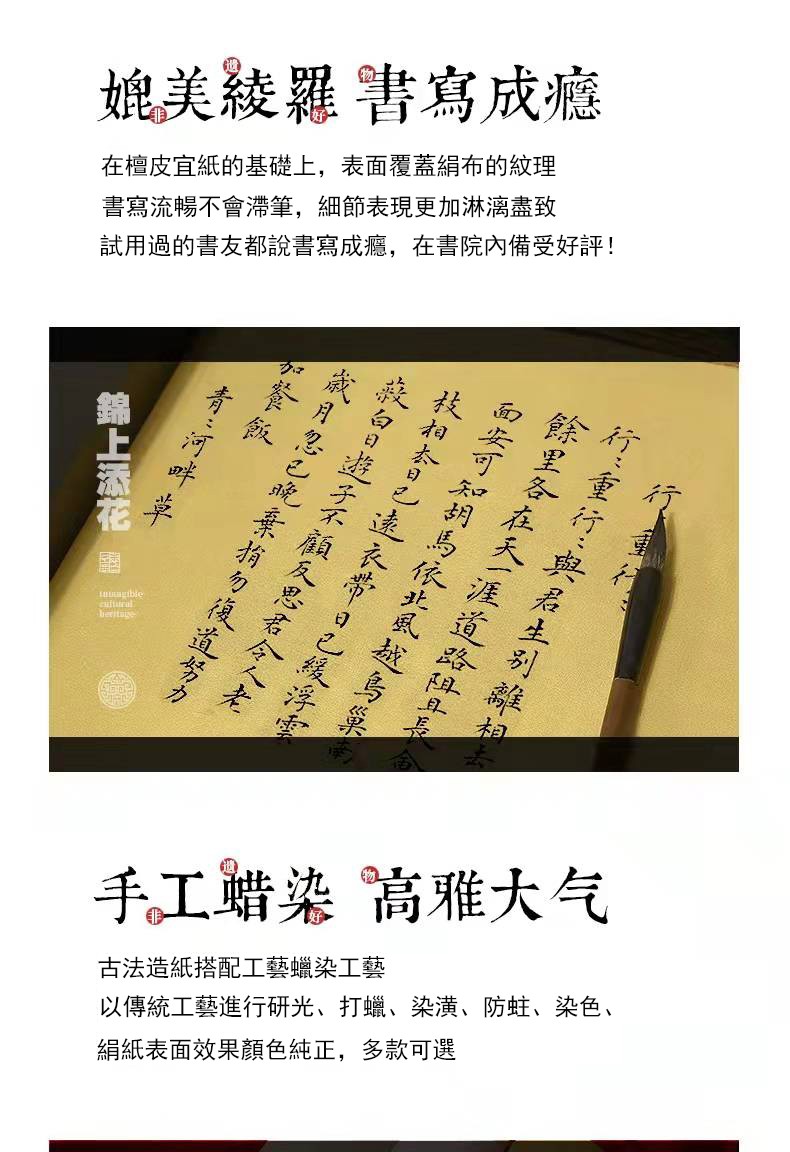 媲美綾羅 書寫成癮
非遺好物
在檀皮宜紙的基礎上，表面覆蓋絹布的紋理
書寫流暢不會滯筆，細節表現更加淋漓盡致
試用過的書友都說書寫成癮，在書院內備受好評！
錦上添花
intangible
cultural
heritage
行重行〻
行〻重行〻與君生別離相去
餘里各在天一涯道路阻且長會
面安可知胡馬依北風越鳥巢南
枝相去日已遠衣帶日已緩浮雲
蔽白日遊子不顧反思君令人老
歲月忽已晚棄捐勿復道努力
加餐飯
青〻河畔草
手工蜡染 高雅大气
非遺好物
古法造紙搭配工藝蠟染工藝
以傳統工藝進行研光、打蠟、染潢、防蛀、染色、
絹紙表面效果顏色純正，多款可選